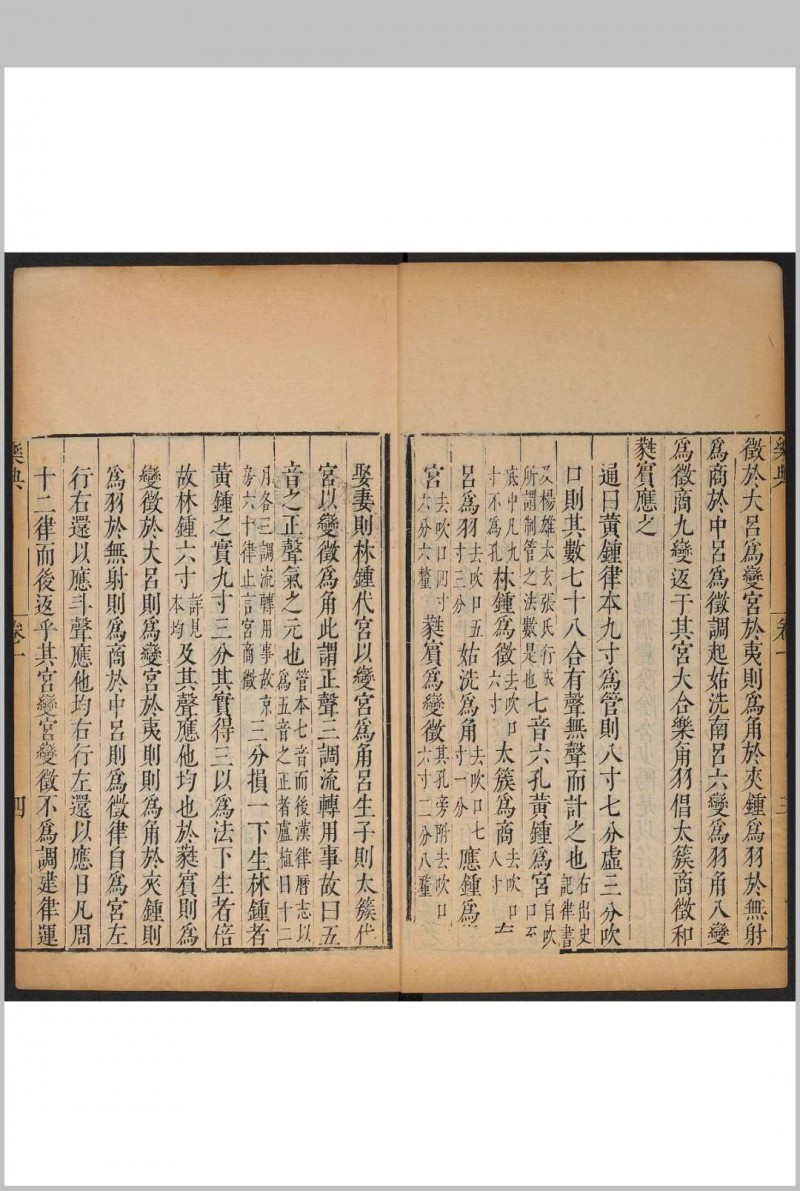 徵於大呂爲變宮於夷則爲角於夾鍾爲羽於無射
爲商於中呂爲徵調起姑洗南呂六變爲羽角八變
爲徵商九變返于其宮大合樂角羽倡太簇商徵和
蕤賓應之
通曰黃鍾律本九寸爲管則八寸七分虛三分吹
口則其數七十八合有聲無聲而計之也右出史記律書
及楊雄太玄張氏行成所謂制管之法數是也七音六孔黃鍾爲宮自吹口至
底中凡九寸不爲孔林鍾爲徵去吹口六寸太簇爲商去吹口八寸
呂爲羽去吹口五寸三分姑洗爲角去吹口七寸一分應鍾爲
宮去吹口四寸六分六釐蕤賓爲變徵其孔旁附去吹口六寸二分八釐
娶妻則林鍾代宮以變宮爲角呂生子則太簇代
宮以變徵爲角此謂正聲三調流轉用事故曰五
音之正聲氣之元也管本七音而後漢律曆志以爲五音之正者盧植曰十二
月各三調流轉用事故京房六十律止言宮商徵三分損一下生林鍾者
黃鍾之實九寸三分其實得三以爲法下生者倍
故林鍾六寸詳見本均及其聲應他均也於蕤賓則爲
變徵於大呂則爲變宮於夷則則爲角於夾鍾則
爲羽於無射則爲商於中呂則爲徵律自爲宮左
行右還以應斗聲應他均右行左還以應日凡周
十二律而後返乎其宮變宮變徵不爲調違律運
樂典
卷一
三
樂典
卷一
四